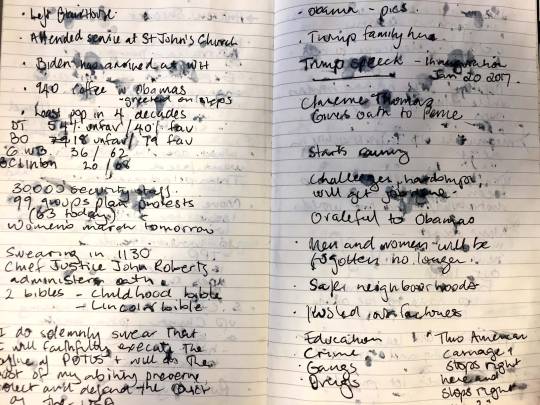 · Left Blair House.
· Attended service at St John's Church
· Biden has arrived at WH
· 940 coffee w Obamas
- greeted on steps
· Least pop in 4 decades
DT 54% unfav / 40% fav
BO 18 unfav / 79 fav
GWB 36 / 62
Clinton 20 /
30000 security staff.
99 groups plan protests
(63 today)
Women's march tomorrow
Swearing in 1130
Chief Justice John Roberts
administers oath
2 bibles - childhood bible
- Lincoln bible
I do solemnly swear that
I will faithfully execute the
office of POTUS + will to the
best of my ability preserve
protect and defend the
of the USA
· Obama - pics
· Trump family here
Trump speech - inauguration
Jan 20 2017.
Clarence Thomas
gives oath to Pence
Starts raining
Challenges, hardships,
will get job done
Grateful to Obamas
· Men and women will be
forgotten no longer.
· Safer neighbourhoods
· Rusted out factories
· Education
· Crime
· Gangs
· Drugs
This American
carnage
stops right
here and
stops right